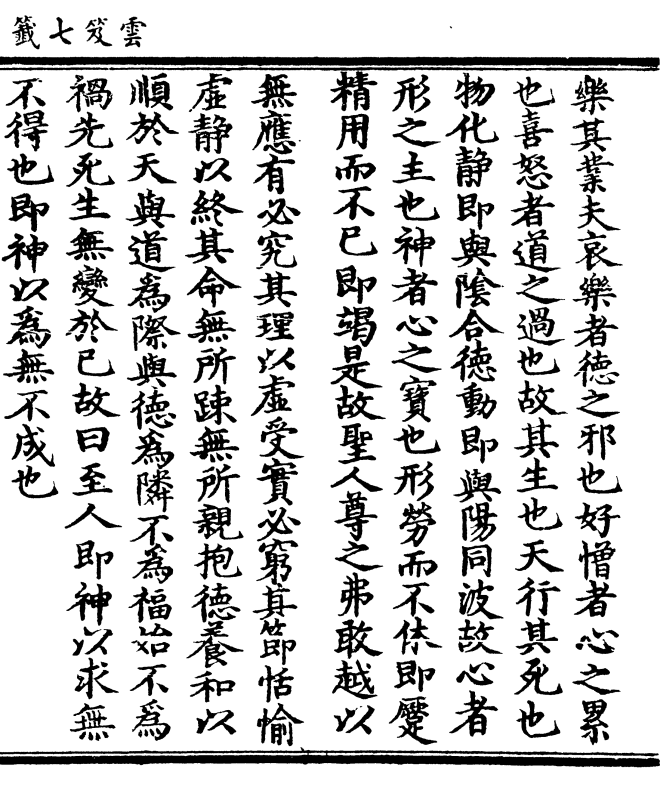 雲笈七籤
樂其業夫哀樂者德之邪也好憎者心之累
也喜怒者道之過也故其生也天行其死也
物化靜即與陰合德動即與陽同波故心者
形之主也神者心之寶也形勞而不休即蹷
精用而不已即竭是故聖人尊之弗敢越以
無應有必究其理以虛受實必窮其節恬愉
虛靜以終其命無所踈無所親抱德養和以
順於天與道為際與德為隣不為福始不為
禍先死生無變於己故曰至人即神以求無
不得也即神以為無不成也